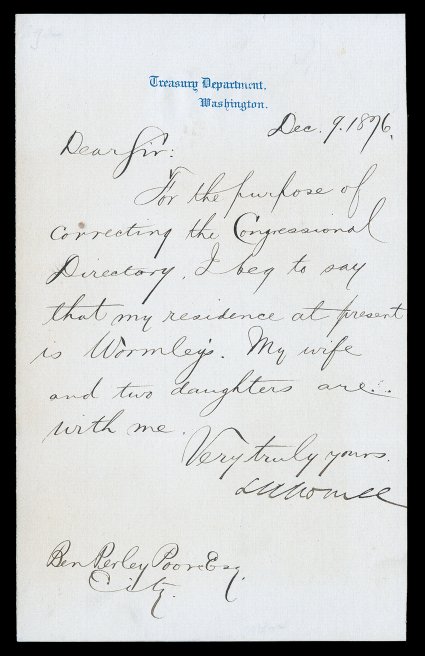 Treasury Department,
Washington.
Dec. 9. 1876.
Dear Sir:
For the purpose of
correcting the Congressional
Directory, I beg to say
that my residence at present
is Wormley's. My wife
and two daughters are
with me.
Very truly yours.
Ben Perley Poore Esq.
City.